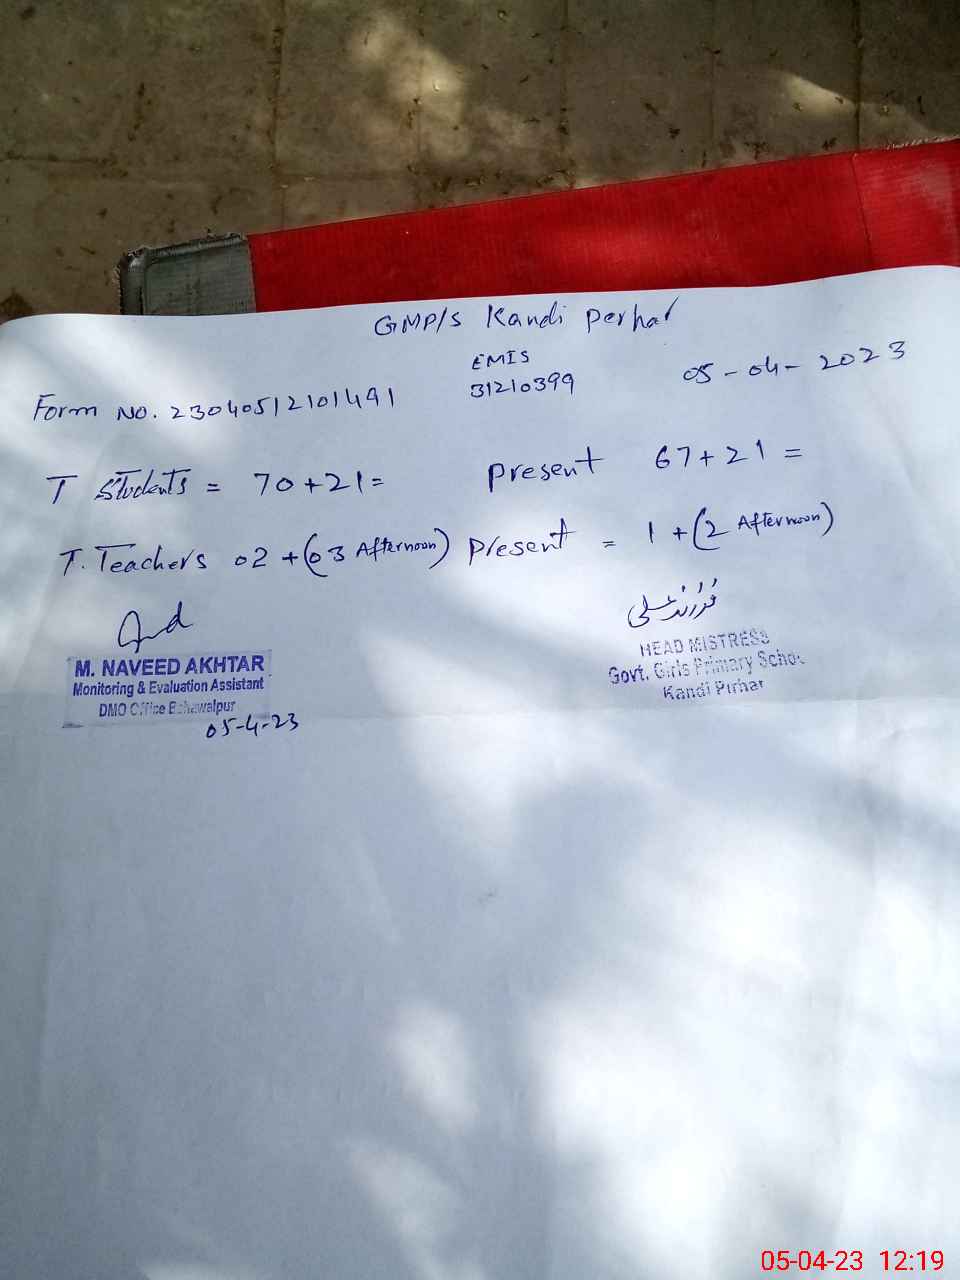 GMP/S Kandi Perhar
EMIS
31210399
05-04-2023
Form No. 23040512101491
T Students = 70+21= Present 67+21 =
T. Teachers 02 +(03 Afternoon) Present = 1 +(2 Afternoon)
M. NAVEED AKHTAR
Monitoring & Evaluation Assistant
DMO Office Bahawalpur
05-4-23
HEAD MISTRESS
Govt. Girls Primary School
Kandi Pirhar
05-04-23 12:19